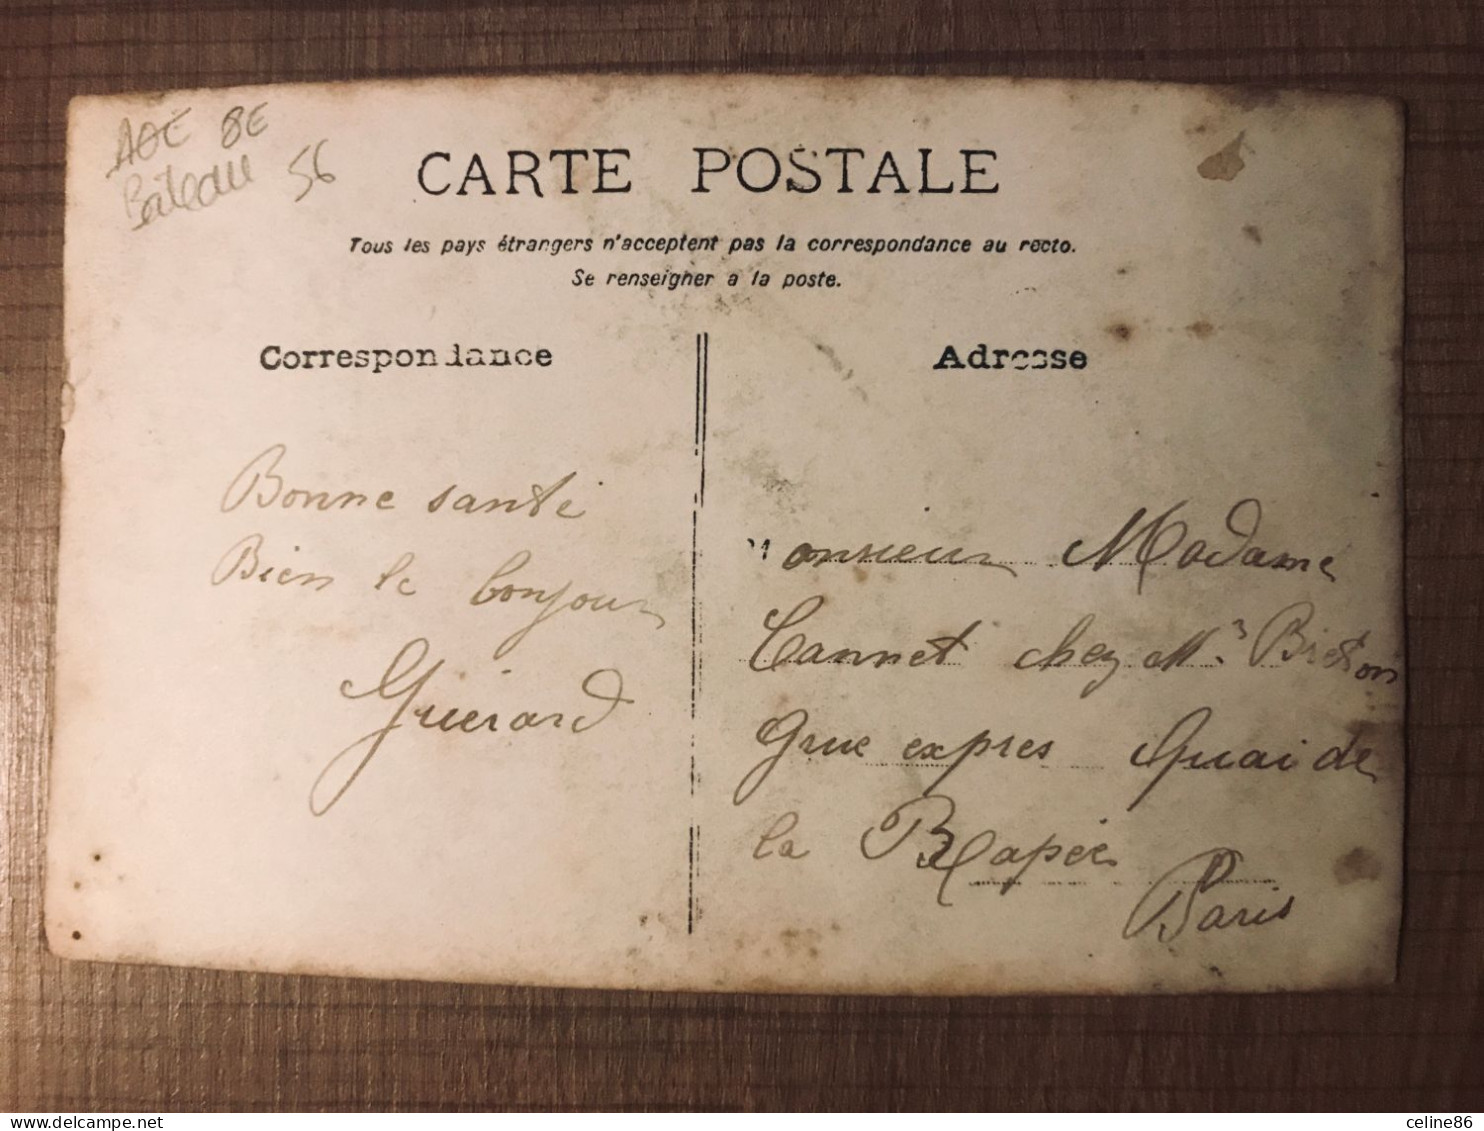 8E
Bateau 56
CARTE POSTALE
Tous les pays étrangers n'acceptent pas la correspondance au recto.
Se renseigner a la poste.
Correspondance
Bonne santé
Bien le bonjour
Guérard
Adresse
Monsieur Madame
Cannet chez Mr Breton
Grue expres Quai de
la Rapée
Paris
celine86